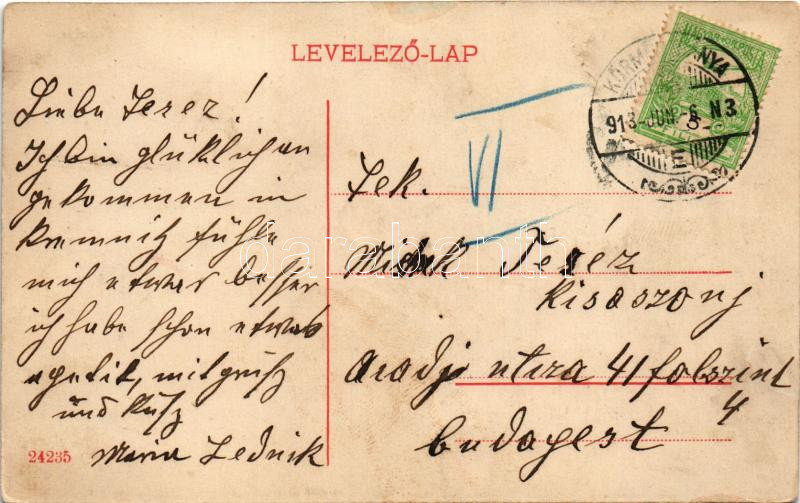 LEVELEZŐ-LAP
Liebe Terez!
Ich bin glücklich an
gekommen in
Kremnitz fühle
mich etwas besser
ich habe schon etwas
apetit, mit grusz
und Kusz
Maria Lednik
24235
VI
Tek.
Teréz
Kisaszonj
aradji utcza 41 folszint
4
budapest
KÖRM NYA
913-JUN.-6 N3
darabanth